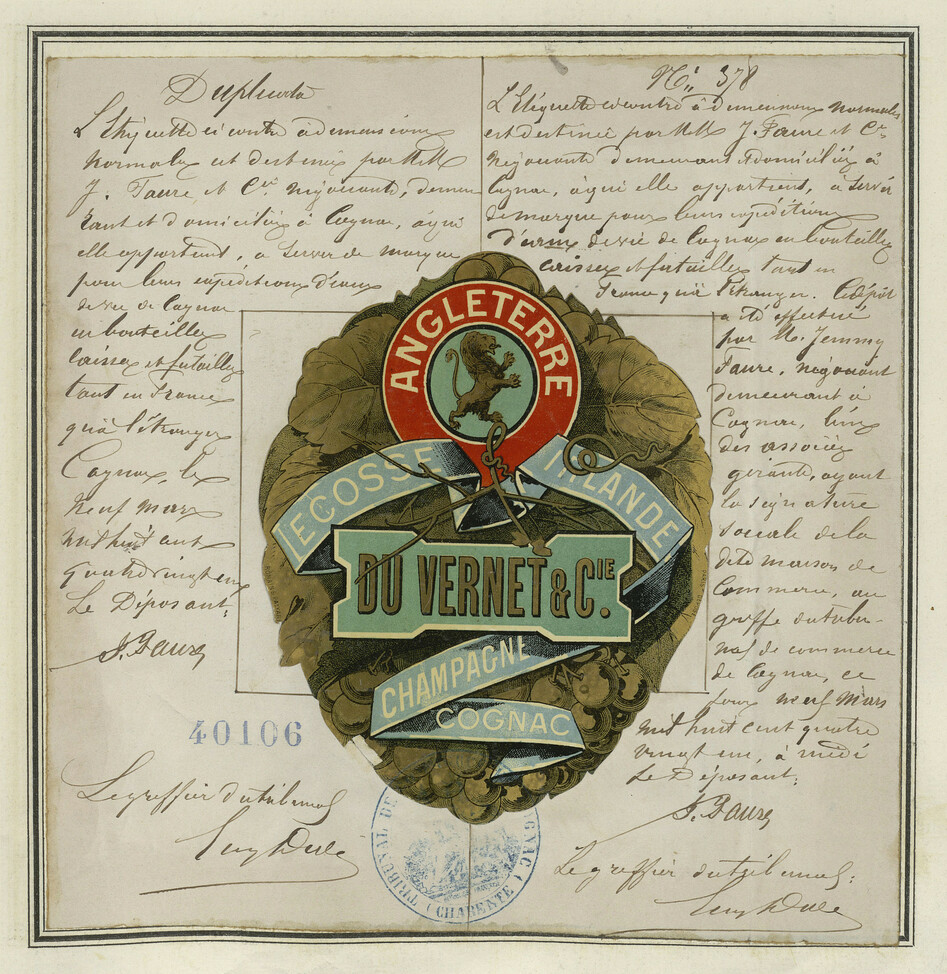 Duplicata
L'étiquette ci contre à dimensions
normales est destinée par MM
J. Faure et Cie négociants, demeu-
rant et domiciliés à Cognac, à qui
elle appartient, à servir de marque
pour leurs expéditions d'eaux
de vie de Cognac
en bouteilles
caisses et futailles
tant en France
qu'à l'étranger
Cognac, le
neuf mars
mil huit cent
quatre vingt un
Le Déposant:
J. Faure
40106
Le greffier du tribunal
No 378
L'Etiquette ci contre à dimensions normales
est destinée par MM J. Faure et Cie
négociants demeurant et domiciliés à
Cognac, à qui elle appartient, à servir
de marque pour leurs expéditions
d'eaux de vie de Cognac en bouteilles
caisses et futailles tant en
France qu'à l'étranger. Ce dépôt
a été effectué
par M. Jemmy
Faure, négociant
demeurant à
Cognac, l'un
des associés
gérants, ayant
la signature
sociale de la
dite maison de
commerce, au
greffe du tribu-
nal de commerce
de Cognac, ce
jour neuf mars
mil huit cent quatre
vingt un, à midi
Le Déposant:
J. Faure
Le greffier du tribunal:
ANGLETERRE
ECOSSE
IRLANDE
DU VERNET & CIE.
CHAMPAGNE
COGNAC
TRIBUNAL DE COGNAC
(CHARENTE)